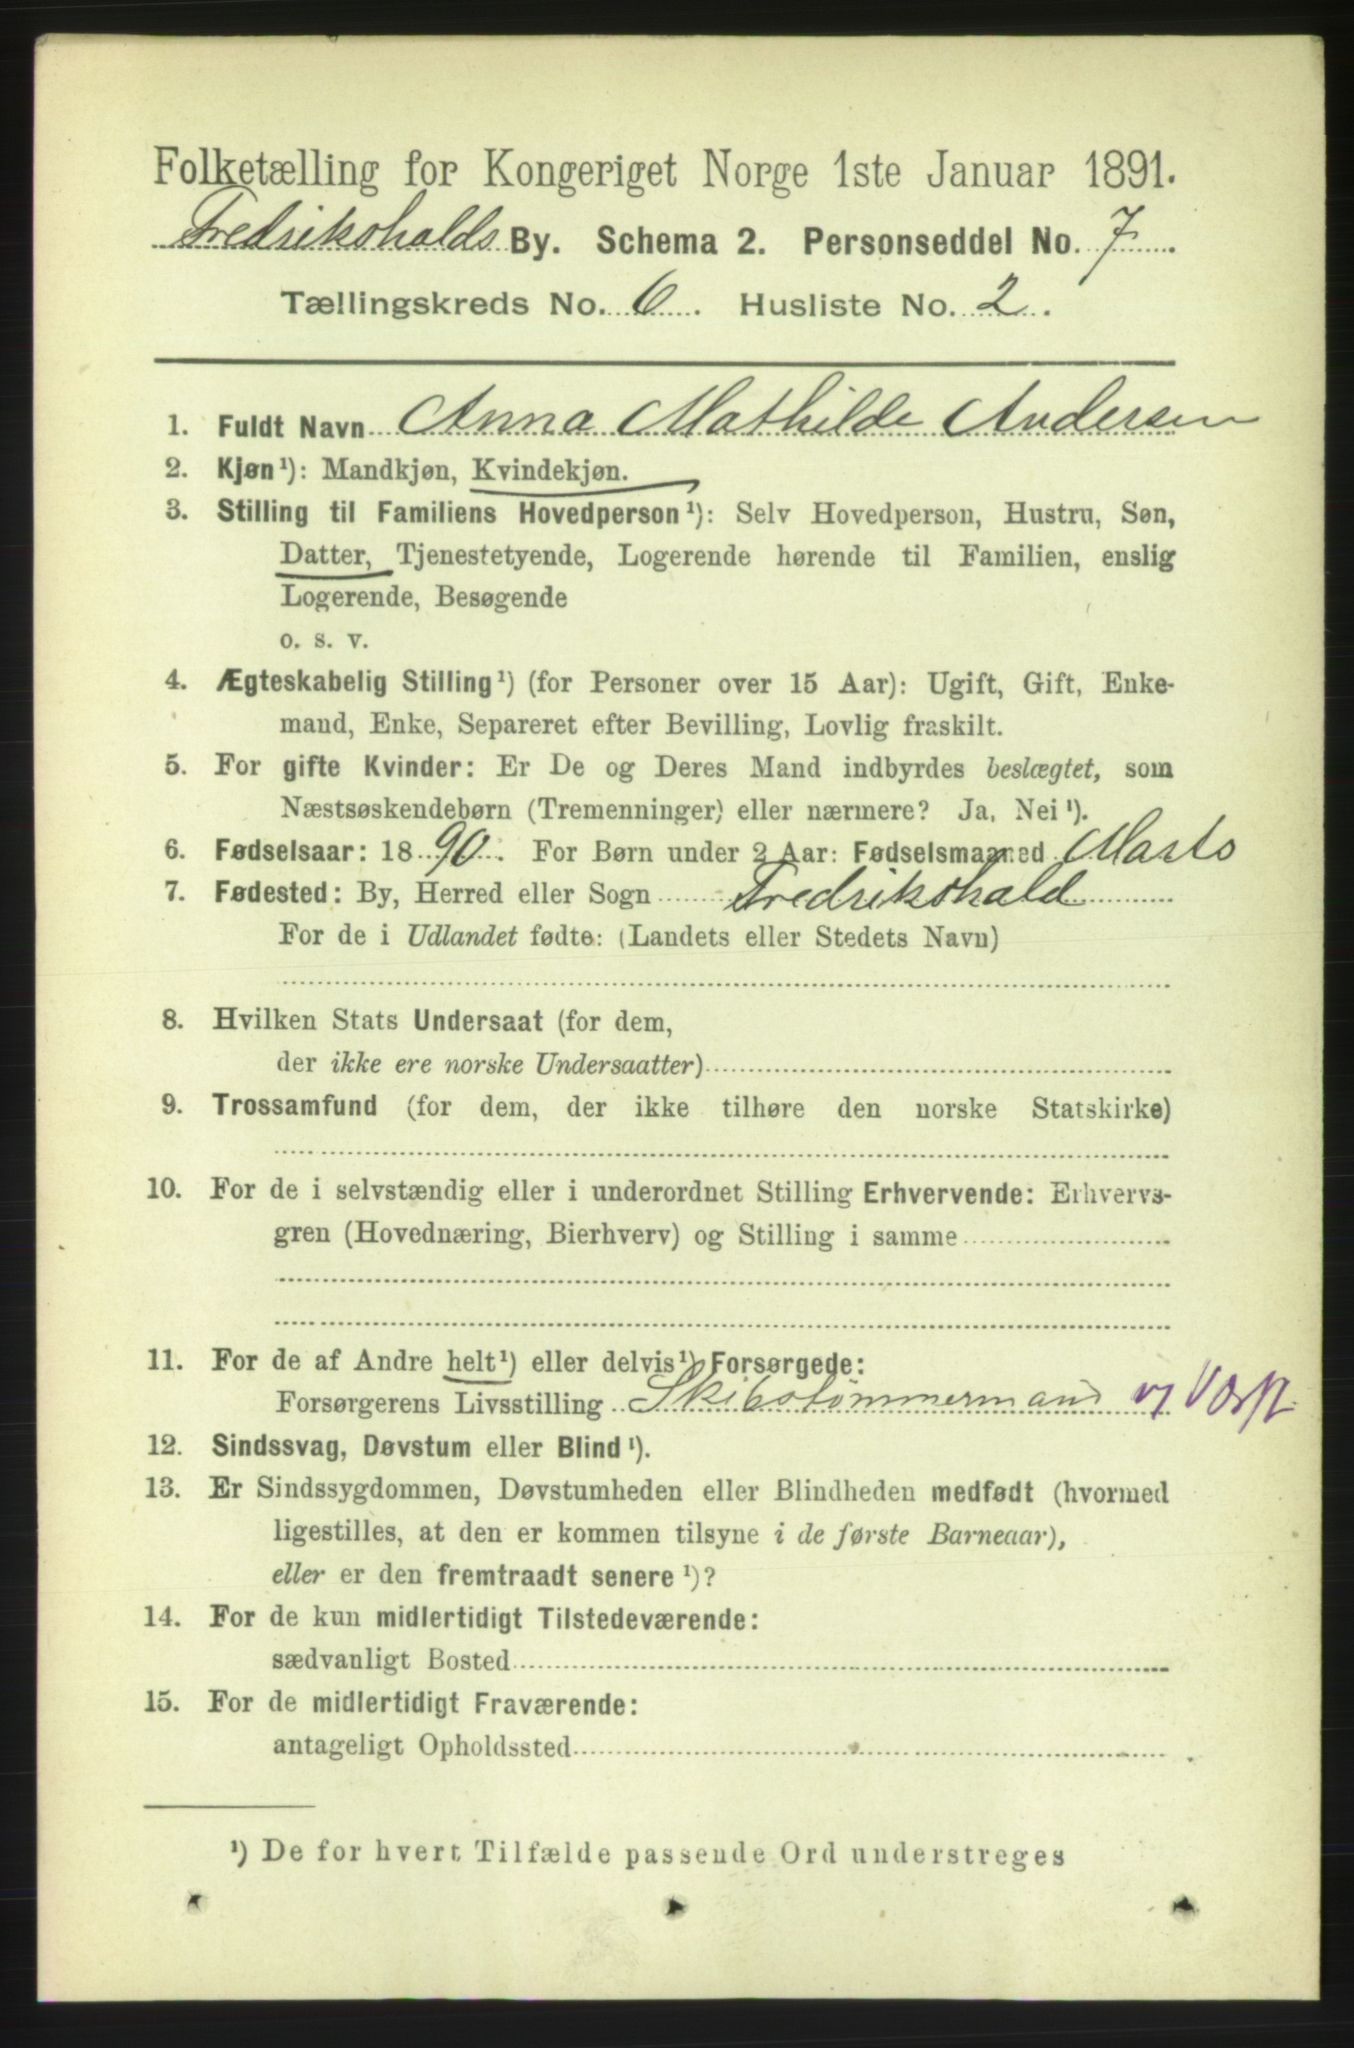 Folketælling for Kongeriget Norge 1ste Januar 1891.
Fredrikshalds By. Schema 2. Personseddel No. 7.
Tællingskreds No. 6. Husliste No. 2.
1. Fuldt Navn Anna Mathilde Andersen
2. Kjøn¹): Mandkjøn, Kvindekjøn.
3. Stilling til Familiens Hovedperson¹): Selv Hovedperson, Hustru, Søn,
Datter, Tjenestetyende, Logerende hørende til Familien, enslig
Logerende, Besøgende
o. s. v.
4. Ægteskabelig Stilling¹) (for Personer over 15 Aar): Ugift, Gift, Enke-
mand, Enke, Separeret efter Bevilling, Lovlig fraskilt.
5. For gifte Kvinder: Er De og Deres Mand indbyrdes beslægtet, som
Næstsøskendebørn (Tremenninger) eller nærmere? Ja, Nei¹).
6. Fødselsaar: 1890. For Børn under 2 Aar: Fødselsmaaned Marts
7. Fødested: By, Herred eller Sogn Fredrikshald
For de i Udlandet fødte: (Landets eller Stedets Navn)
8. Hvilken Stats Undersaat (for dem,
der ikke ere norske Undersaatter)
9. Trossamfund (for dem, der ikke tilhøre den norske Statskirke)
10. For de i selvstændig eller i underordnet Stilling Erhvervende: Erhvervs-
gren (Hovednæring, Bierhverv) og Stilling i samme
11. For de af Andre helt¹) eller delvis¹) Forsørgede:
Forsørgerens Livsstilling Skibstømmermand
12. Sindssvag, Døvstum eller Blind¹).
13. Er Sindssygdommen, Døvstumheden eller Blindheden medfødt (hvormed
ligestilles, at den er kommen tilsyne i de første Barneaar),
eller er den fremtraadt senere¹)?
14. For de kun midlertidigt Tilstedeværende:
sædvanligt Bosted
15. For de midlertidigt Fraværende:
antageligt Opholdssted
¹) De for hvert Tilfælde passende Ord understreges